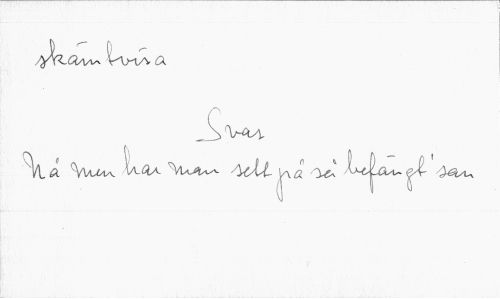 skämtvisa
Svar
Nå men har man sett på så befängt' san